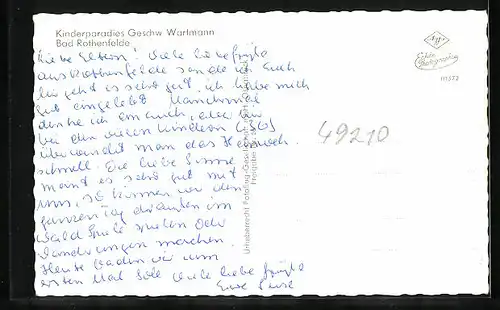 Kinderparadies Geschw Wartmann
Bad Rothenfelde
Agfa
Echte Photographie
Liebe Eltern! Viele liebe Grüße
aus Rothenfelde sende ich Euch
hir geht es sehr gut, ich habe mich
gut eingelebt. Manchmal
denke ich an euch, aber
bei den vielen Kindern (36)
überwindet man das Heimweh
schnell. Die liebe Sonne
meint es sehr gut mit
uns, so können wir den
ganzen Tag draußen im
Wald Spiele spielen Oder
Wanderungen machen.
Heute baden wir zum
ersten Mal Sole. Viele liebe Grüße
Eure
49210
Urheberrecht Fotoflug-Gesellschaft